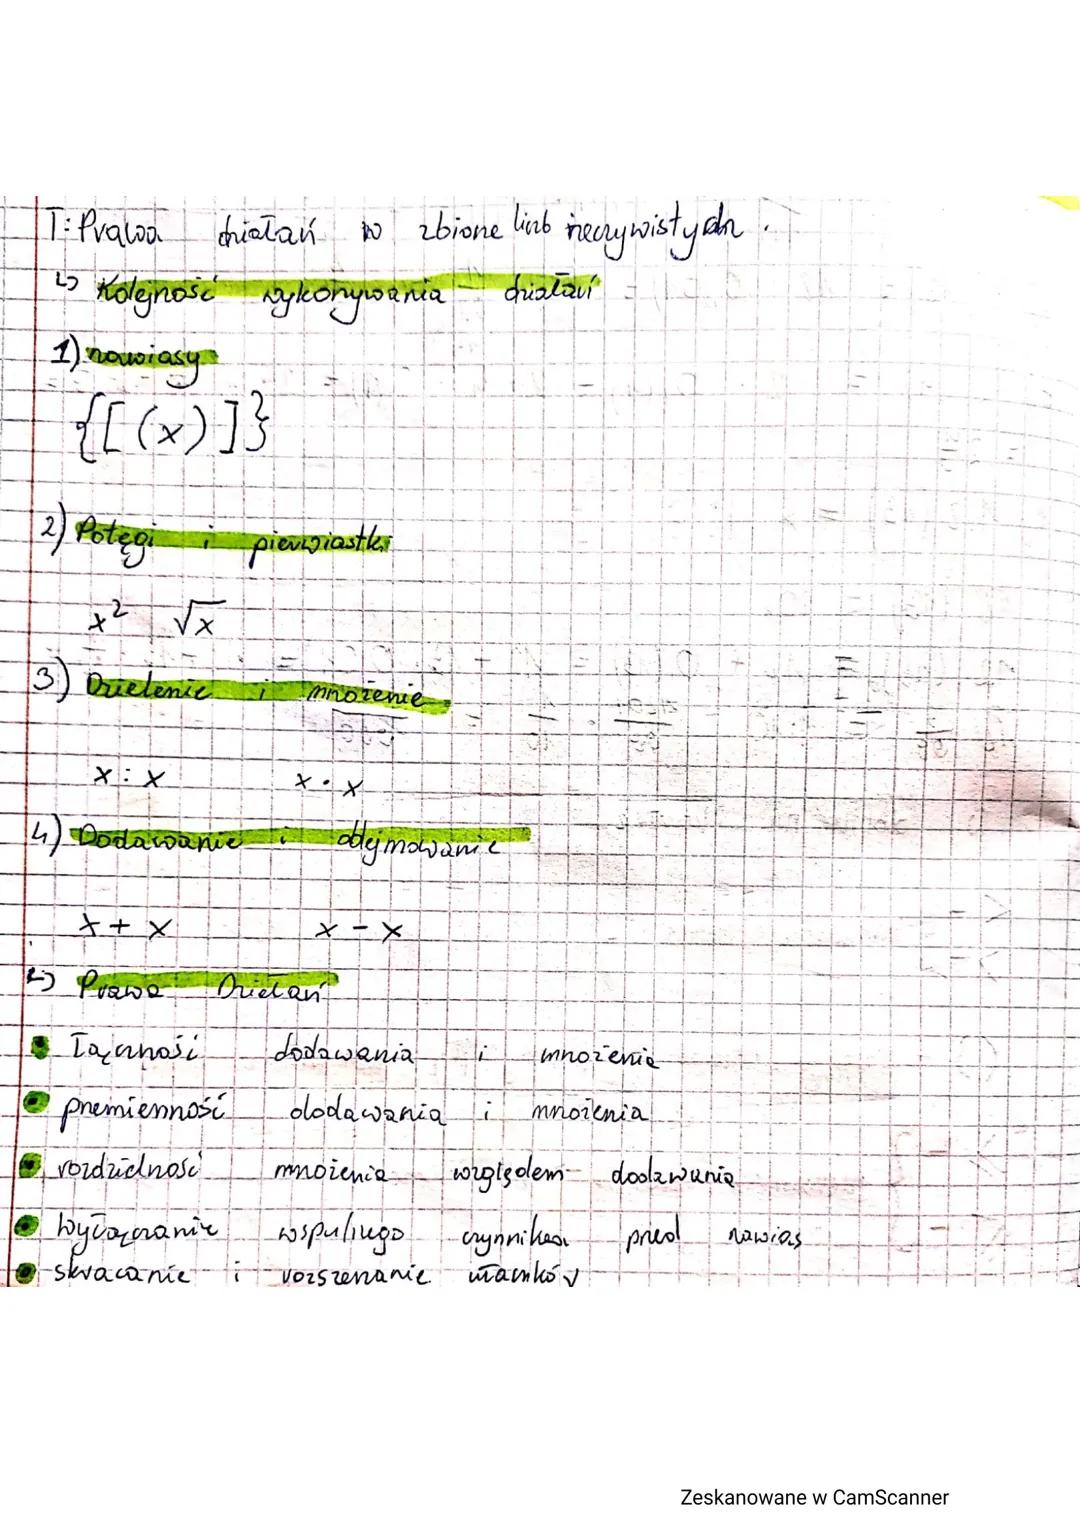 T: Prawa działań w zbiorze liczb rzeczywistych.
↳ Kolejność wykonywania działań
1) nawiasy
{[(x)]}
2) Potęgi i pierwiastki
x² √x
3) Dzielenie i mnożenie
x : x x · x
4) Dodawanie i odejmowanie
x + x x - x
↳ Prawa Działań
• Łączność dodawania i mnożenia
• przemienność dodawania i mnożenia
• rozdzielność mnożenia względem dodawania
• wyłączanie wspólnego czynnika przed nawias
• skracanie i rozszerzanie ułamków
Zeskanowane w CamScanner